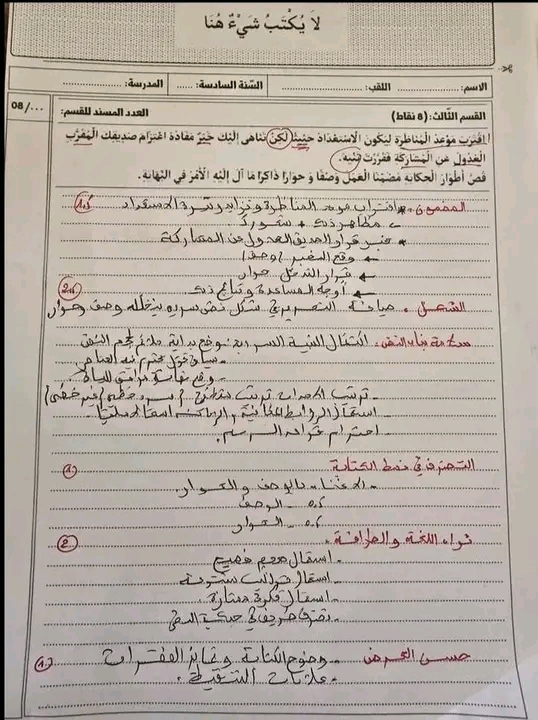 لَا يُكْتَبُ شَيْءٌ هُنَا
الاسم: .................. اللقب: .................. السّنة السادسة: ...... المدرسة: ..................
القسم الثّالث: (8 نقاط) العدد المسند للقسم: ..../08
اِقْتَرَبَ مَوْعِدُ الْمُنَاظَرَةِ لِيَكُونَ الِاسْتِعْدَادُ حَثِيثًا لَكِنْ تَنَاهَى إِلَيْكَ خَبَرٌ مَفَادُهُ اعْتِزَامُ صَدِيقِكَ الْمُقَرَّبِ
الْعُدُولَ عَنِ الْمُشَارَكَةِ فَقَرَّرْتَ ثَنْيَهُ.
قُصَّ أَطْوَارَ الْحِكَايَةِ مُضَمِّنًا الْعَمَلَ وَصْفًا وَ حِوَارًا ذَاكِرًا مَا آلَ إِلَيْهِ الْأَمْرُ فِي النِّهَايَةِ.
المضمون: اقتراب موعد المناظرة و تزايد وتيرة الاستعداد
مظاهر ذلك + شعورك
خبر قرار الصديق العدول عن المشاركة
وقع الخبر (وصف)
قرار التدخل حوار
أوجه المساعدة و نتائج ذلك
الشكل: صياغة التعبير في شكل نص سردي يتخلله وصف وحوار
سلامة بناء النص: اكتمال البنية السردية: وضع بداية ملائم لحجم النص
- سياق تحول
- وضع نهاية
- ترتيب الأحداث ترتيب منطقي
- استعمال الروابط
- احترام قواعد الرسم.
التصرف في نمط الكتابة 1
- الاغناء بالوصف و الحوار
0.5 - الوصف
0.5 - الحوار
ثراء اللغة و الطرافة 2
- استعمال معجم فصيح
- استعمال قوالب متنوعة
- استعمال فكرة ممتازة
حسن العرض - وضوح الكتابة و تمايز الفقرات 1
- علامات التنقيط.